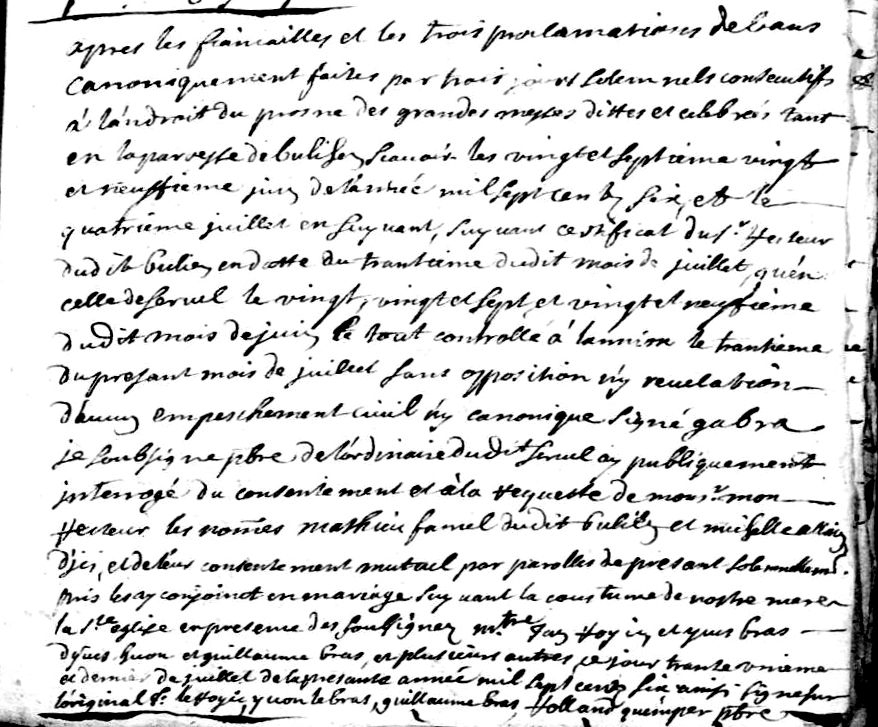 apres les fiancailles et les trois proclamations de bans
canoniquement faites par trois jours solemnels consecutifs
à l'androit du prosne des grandes messes dittes et celebrées tant
en la paroesse de bulien scavoir les vingt et septieme vingt
et neuffieme juin de l'année mil sept cents six, et le
quatrieme juillet en suyvant, suyvant certificat du sr. Recteur
dudit bulien en datte du trantieme dudit mois de juillet, qu'en
celle de servel le vingt, vingt et sept et vingt et neuffieme
dudit mois de juin le tout controllé à lannion le trantieme
du presant mois de juillet sans opposition n'y revelation
d'aucun empeschement civil n'y canonique signé gabra
je soubsigne pbre de l'ordinaire dudit servel ay publiquement
interrogé du consentement et à la requeste de monsr. mon
Recteur les nommés mathieu famel dudit bulien et
d'jci, et de leur consentement mutuel par parolles de presant solemnellemt.
puis les ay conjoinct en mariage suyvant la coustume de nostre mere
la Ste eglise en presence des soubsignez yvon et yves bras
d'yves huon et guillaume bras, et plusieurs autres, ce jour trante unieme
et dernier de juillet de la presante année mil sept cents six ainsi signe sur
l'original yvon le bras, guillaume bras Rolland quemper pbre